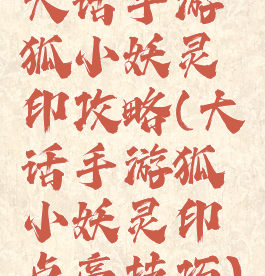 大话手游
狐小妖灵
印攻略(大
话手游狐
小妖灵印
点高技巧)